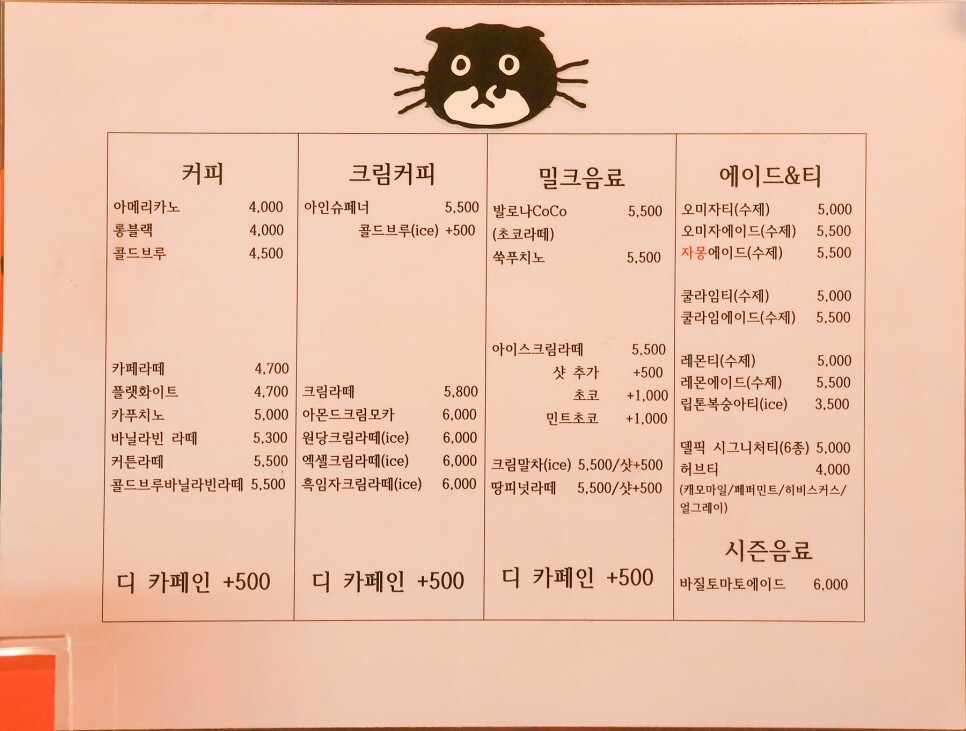 커피
아메리카노 4,000
롱블랙 4,000
콜드브루 4,500
카페라떼 4,700
플랫화이트 4,700
카푸치노 5,000
바닐라빈 라떼 5,300
커튼라떼 5,500
콜드브루바닐라빈라떼 5,500
디 카페인 +500
크림커피
아인슈페너 5,500
콜드브루(ice) +500
크림라떼 5,800
아몬드크림모카 6,000
원당크림라떼(ice) 6,000
엑셀크림라떼(ice) 6,000
흑임자크림라떼(ice) 6,000
디 카페인 +500
밀크음료
발로나CoCo 5,500
(초코라떼)
쑥푸치노 5,500
아이스크림라떼 5,500
샷 추가 +500
초코 +1,000
민트초코 +1,000
크림말차(ice) 5,500/샷+500
땅피넛라떼 5,500/샷+500
디 카페인 +500
에이드&티
오미자티(수제) 5,000
오미자에이드(수제) 5,500
자몽에이드(수제) 5,500
쿨라임티(수제) 5,000
쿨라임에이드(수제) 5,500
레몬티(수제) 5,000
레몬에이드(수제) 5,500
립톤복숭아티(ice) 3,500
델픽 시그니처티(6종) 5,000
허브티 4,000
(캐모마일/페퍼민트/히비스커스/
얼그레이)
시즌음료
바질토마토에이드 6,000